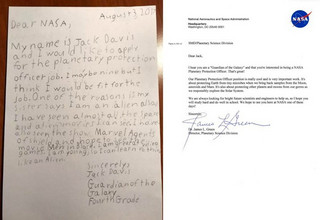 August 3, 2017
Dear NASA,
My name is Jack Davis
and I would like to apply
for the planetary protection
officer job. I may be nine but I
think I would be fit for the
job. One of the reasons is my
sister says I am an alien also
I have seen almost all the space
and alien movies I can see. I have
also seen the show Marvel Agents
of Shield and hope to see the
movie Men in Black. I am great at video
games. I am young so I can learn to think
like an Alien.
Sincerely,
Jack Davis
Guardian of the
Galaxy
Fourth Grade
National Aeronautics and Space Administration
Headquarters
Washington, DC 20546-0001
NASA
SMD/Planetary Science Division
Dear Jack,
I hear you are a "Guardian of the Galaxy" and that you're interested in being a NASA
Planetary Protection Officer. That's great!
Our Planetary Protection Officer position is really cool and is very important work. It's
about protecting Earth from tiny microbes when we bring back samples from the Moon,
asteroids and Mars. It's also about protecting other planets and moons from our germs as
we responsibly explore the Solar System.
We are always looking for bright future scientists and engineers to help us, so I hope you
will study hard and do well in school. We hope to see you here at NASA one of these
days!
Sincerely,
James L. Green
Dr. James L. Green
Director, Planetary Science Division